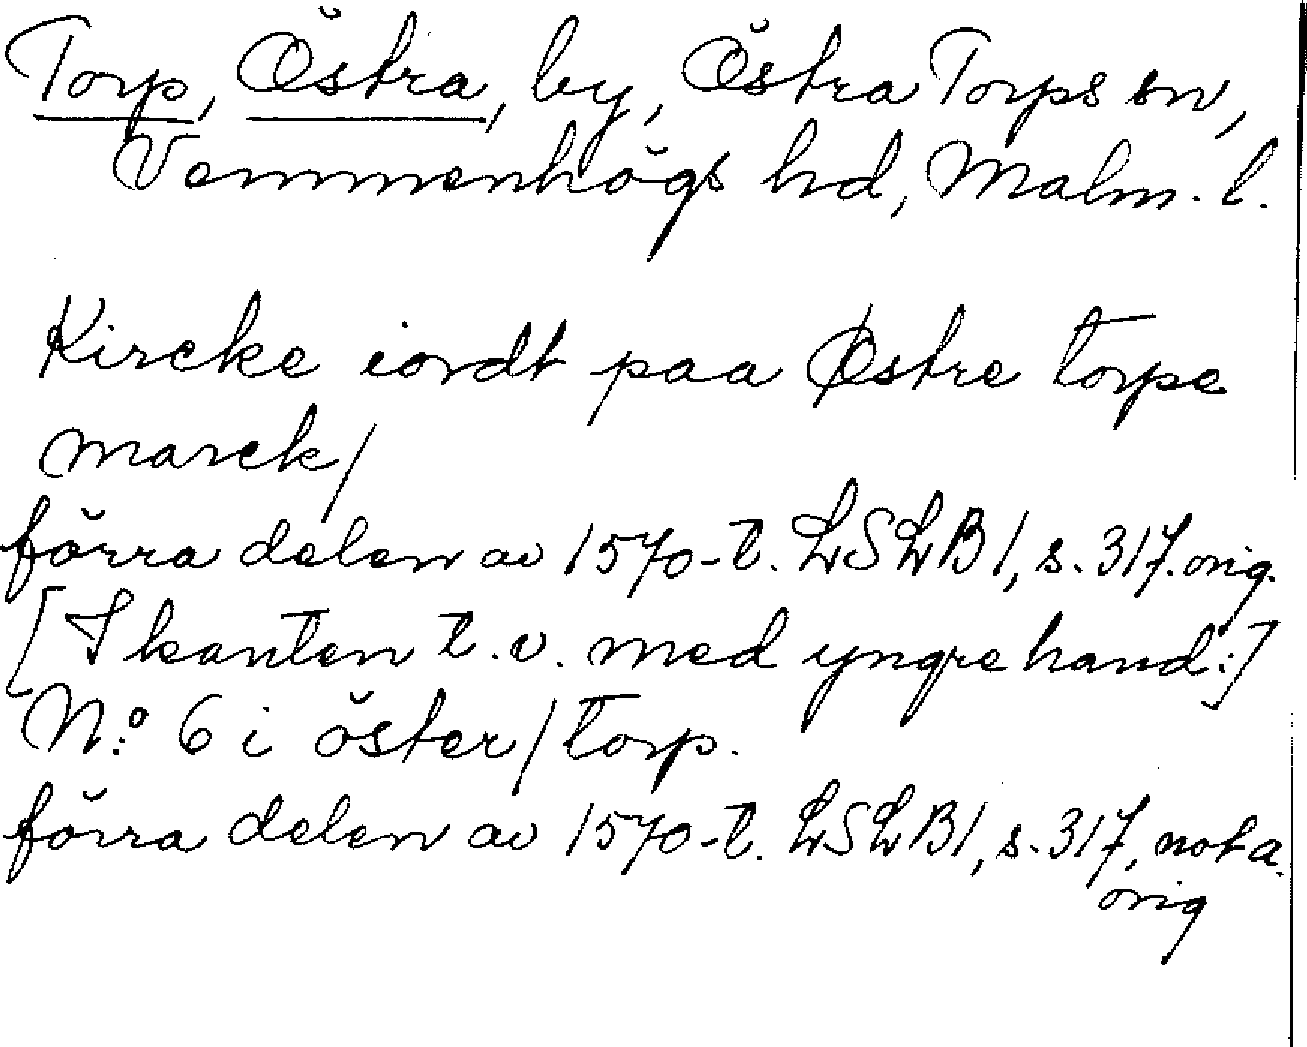 Torp, Östra, by, Östra Torps sn,
Vemmenhögs hd, Malm. l.
Kircke iordt paa Østre torpe
marck/
förra delen av 1570-t. LSLB 1, s. 317. orig.
[I kanten t.v. med yngre hand:]
N:o 6 i öster/torp.
förra delen av 1570-t. LSLB 1, s. 317, not a.
orig